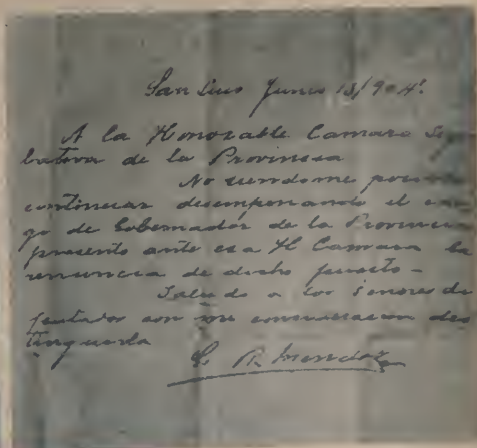 San Luis Junio 13/904.
A la Honorable Camara Legis
lativa de la Provincia
No siendome posible
continuar desempeñando el car
go de Gobernador de la Provincia
presento ante esa H Camara la
renuncia de dicho puesto -
Saludo a los Señores di
putados con mi consideracion dis
tinguida
R Mendoza